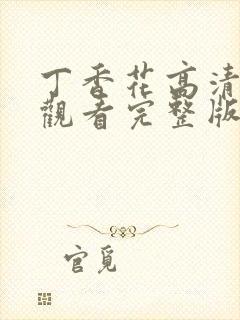 丁香花高清
觀看完整版
官覓